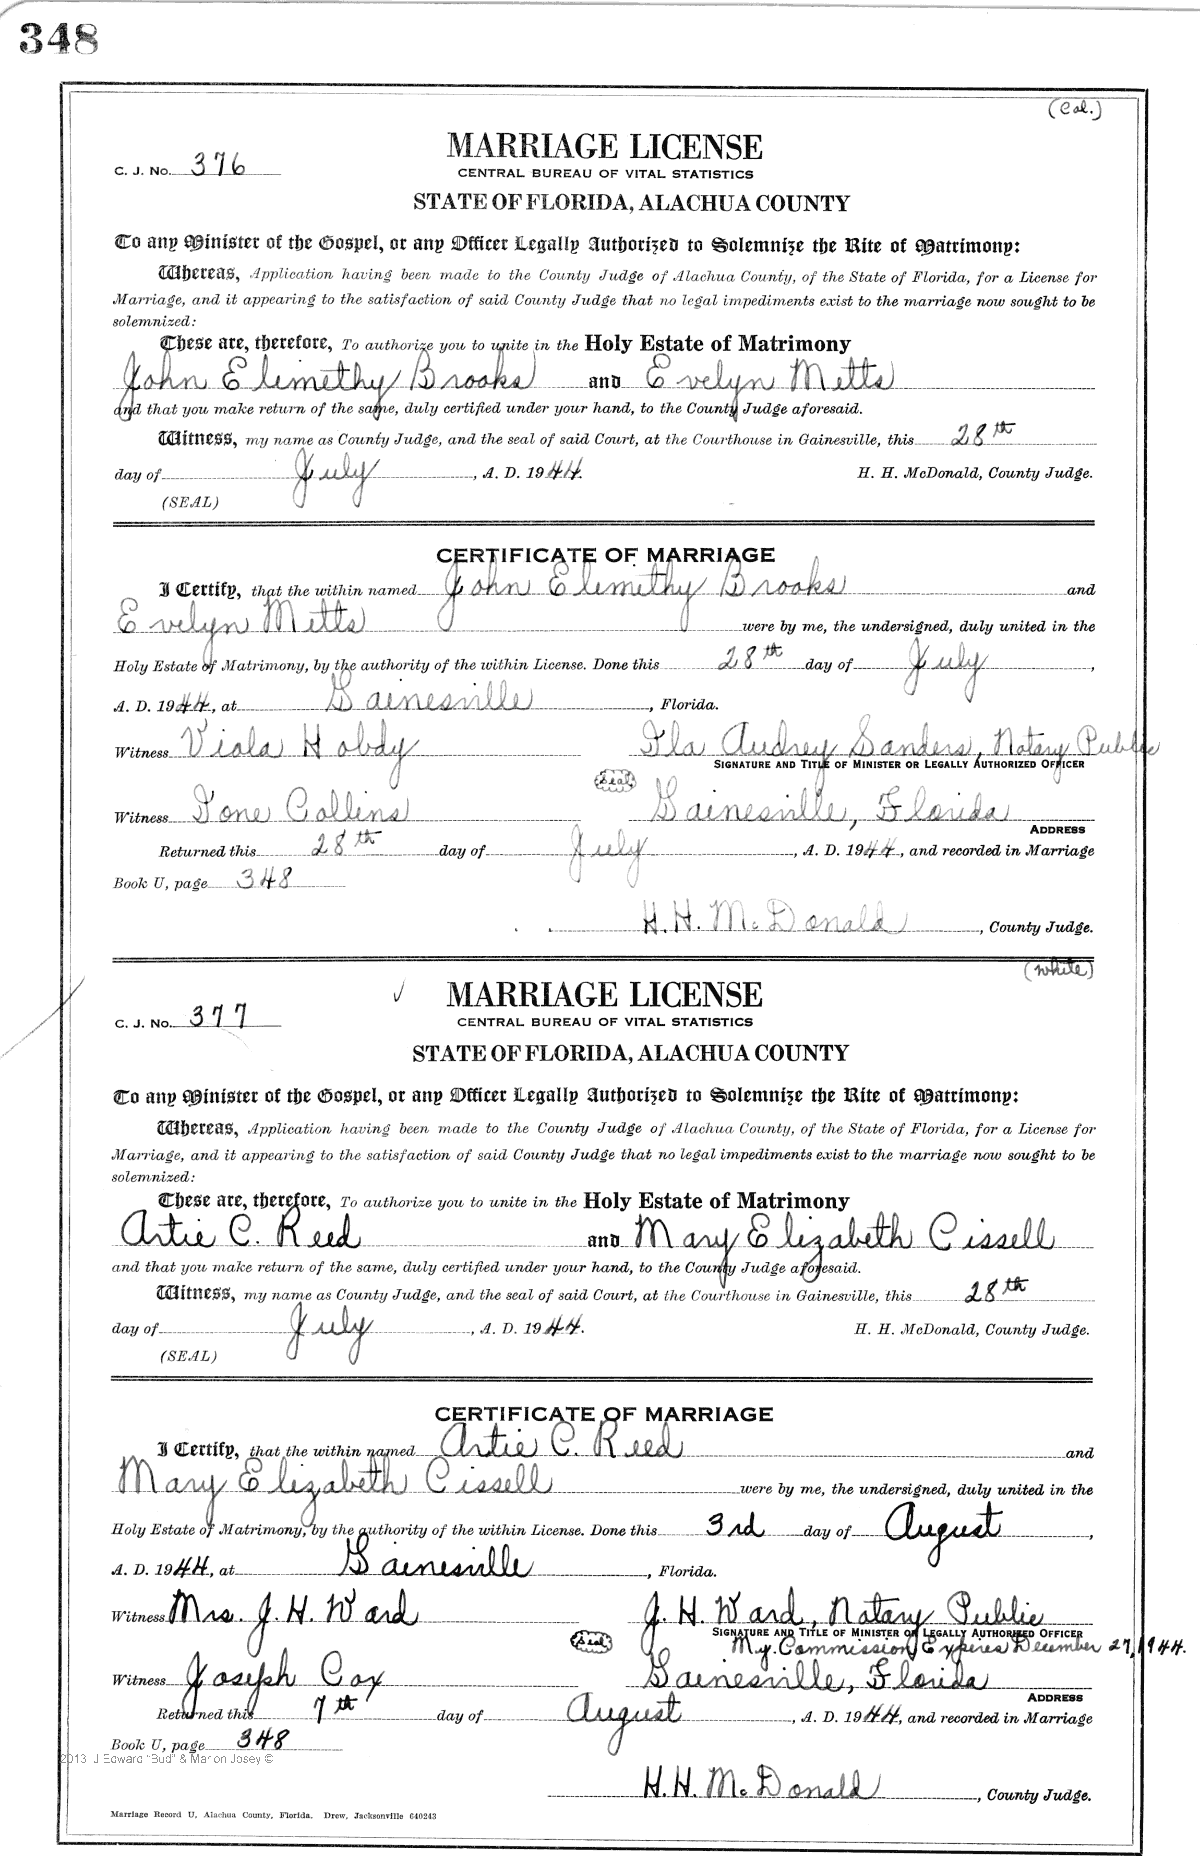 348
(Col.)
MARRIAGE LICENSE
C. J. No. 376
CENTRAL BUREAU OF VITAL STATISTICS
STATE OF FLORIDA, ALACHUA COUNTY
To any Minister of the Gospel, or any Officer Legally Authorized to Solemnize the Rite of Matrimony:
Whereas, Application having been made to the County Judge of Alachua County, of the State of Florida, for a License for
Marriage, and it appearing to the satisfaction of said County Judge that no legal impediments exist to the marriage now sought to be
solemnized:
These are, therefore, To authorize you to unite in the Holy Estate of Matrimony
John Elimethy Brooks and Evelyn Metts
and that you make return of the same, duly certified under your hand, to the County Judge aforesaid.
Witness, my name as County Judge, and the seal of said Court, at the Courthouse in Gainesville, this 28th
day of July, A. D. 1944. H. H. McDonald, County Judge.
(SEAL)
CERTIFICATE OF MARRIAGE
I Certify, that the within named John Elimethy Brooks and
Evelyn Metts were by me, the undersigned, duly united in the
Holy Estate of Matrimony, by the authority of the within License. Done this 28th day of July,
A. D. 1944, at Gainesville, Florida.
Witness Viola Hobdy Ila Audrey Sanders, Notary Public
SIGNATURE AND TITLE OF MINISTER OR LEGALLY AUTHORIZED OFFICER
Seal
Witness Ione Collins Gainesville, Florida
ADDRESS
Returned this 28th day of July, A. D. 1944, and recorded in Marriage
Book U, page 348
H. H. McDonald, County Judge.
(White)
MARRIAGE LICENSE
C. J. No. 377
CENTRAL BUREAU OF VITAL STATISTICS
STATE OF FLORIDA, ALACHUA COUNTY
To any Minister of the Gospel, or any Officer Legally Authorized to Solemnize the Rite of Matrimony:
Whereas, Application having been made to the County Judge of Alachua County, of the State of Florida, for a License for
Marriage, and it appearing to the satisfaction of said County Judge that no legal impediments exist to the marriage now sought to be
solemnized:
These are, therefore, To authorize you to unite in the Holy Estate of Matrimony
Artie C. Reed and Mary Elizabeth Cissell
and that you make return of the same, duly certified under your hand, to the County Judge aforesaid.
Witness, my name as County Judge, and the seal of said Court, at the Courthouse in Gainesville, this 28th
day of July, A. D. 1944. H. H. McDonald, County Judge.
(SEAL)
CERTIFICATE OF MARRIAGE
I Certify, that the within named Artie C. Reed and
Mary Elizabeth Cissell were by me, the undersigned, duly united in the
Holy Estate of Matrimony, by the authority of the within License. Done this 3rd day of August,
A. D. 1944, at Gainesville, Florida.
Witness Mrs. J. H. Ward J. H. Ward, Notary Public
SIGNATURE AND TITLE OF MINISTER OR LEGALLY AUTHORIZED OFFICER
Seal My Commission Expires December 27, 1944.
Witness Joseph Cox Gainesville, Florida
ADDRESS
Returned this 7th day of August, A. D. 1944, and recorded in Marriage
Book U, page 348
2013 J Edward "Bud" & Marion Josey ©
H. H. McDonald, County Judge.
Marriage Record U, Alachua County, Florida. Drew, Jacksonville 640243